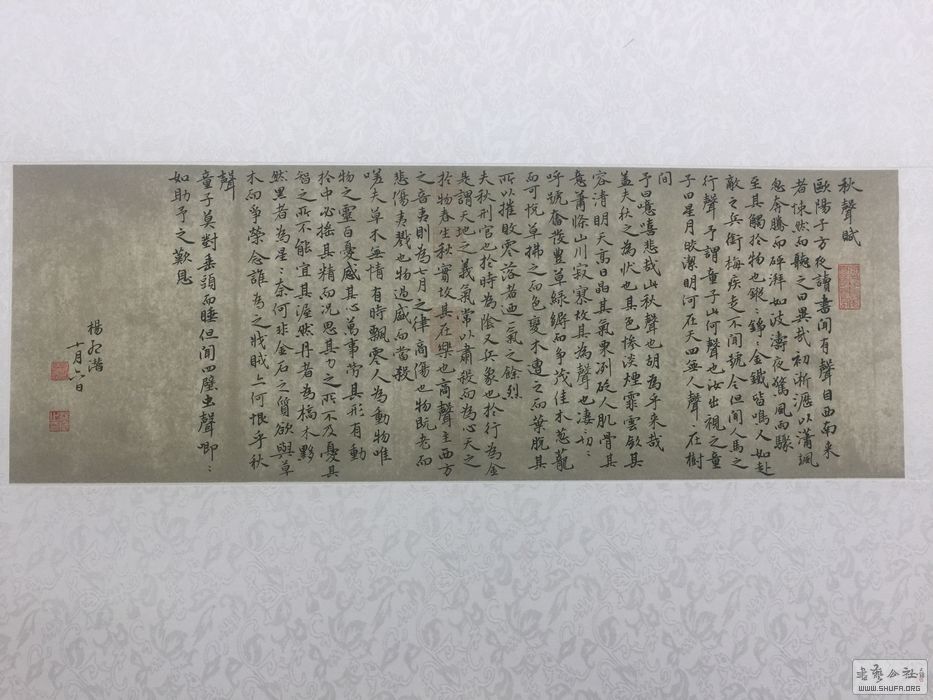 秋聲賦
歐陽子方夜讀書聞有聲自西南来
者悚然而聽之曰異哉初淅瀝以瀟颯
忽奔騰而砰湃如波濤夜驚風雨驟
至其觸扵物也鏦:錚:金鐵皆鳴又如赴
敵之兵銜枚疾走不聞號令但聞人馬之
行聲予謂童子此何聲也汝出視之童
子曰星月皎潔明河在天四無人聲:在樹
間
予曰噫嘻悲哉此秋聲也胡為乎来哉
蓋夫秋之為狀也其色慘淡煙霏雲斂其
容清明天高日晶其氣栗冽砭人肌骨其
意蕭條山川寂寥故其為聲也凄:切:
呼號奮發豐草綠縟而争茂佳木蔥蘢
而可悅草拂之而色變木遭之而葉脫其
所以摧敗零落者迺一氣之餘烈
夫秋刑官也扵時為陰又兵象也扵行為金
是謂天地之義氣常以肅殺而為心天之
扵物春生秋實故其在樂也商聲主西方
之音夷則為七月之律商傷也物既老而
悲傷夷戮也物過盛而當殺
嗟夫草木無情有時飄零人為動物唯
物之靈百憂感其心萬事勞其形有動
扵中必搖其精而况思其力之所不及憂其
智之所不能宜其渥然丹者為槁木黟
然黑者為星:奈何非金石之質欲與草
木而争榮念誰為之戕賊亦何恨乎秋
聲
童子莫對垂頭而睡但聞四壁虫聲唧:
如助予之歎息
楊
十月六日
WWW.SHUFA.ORG